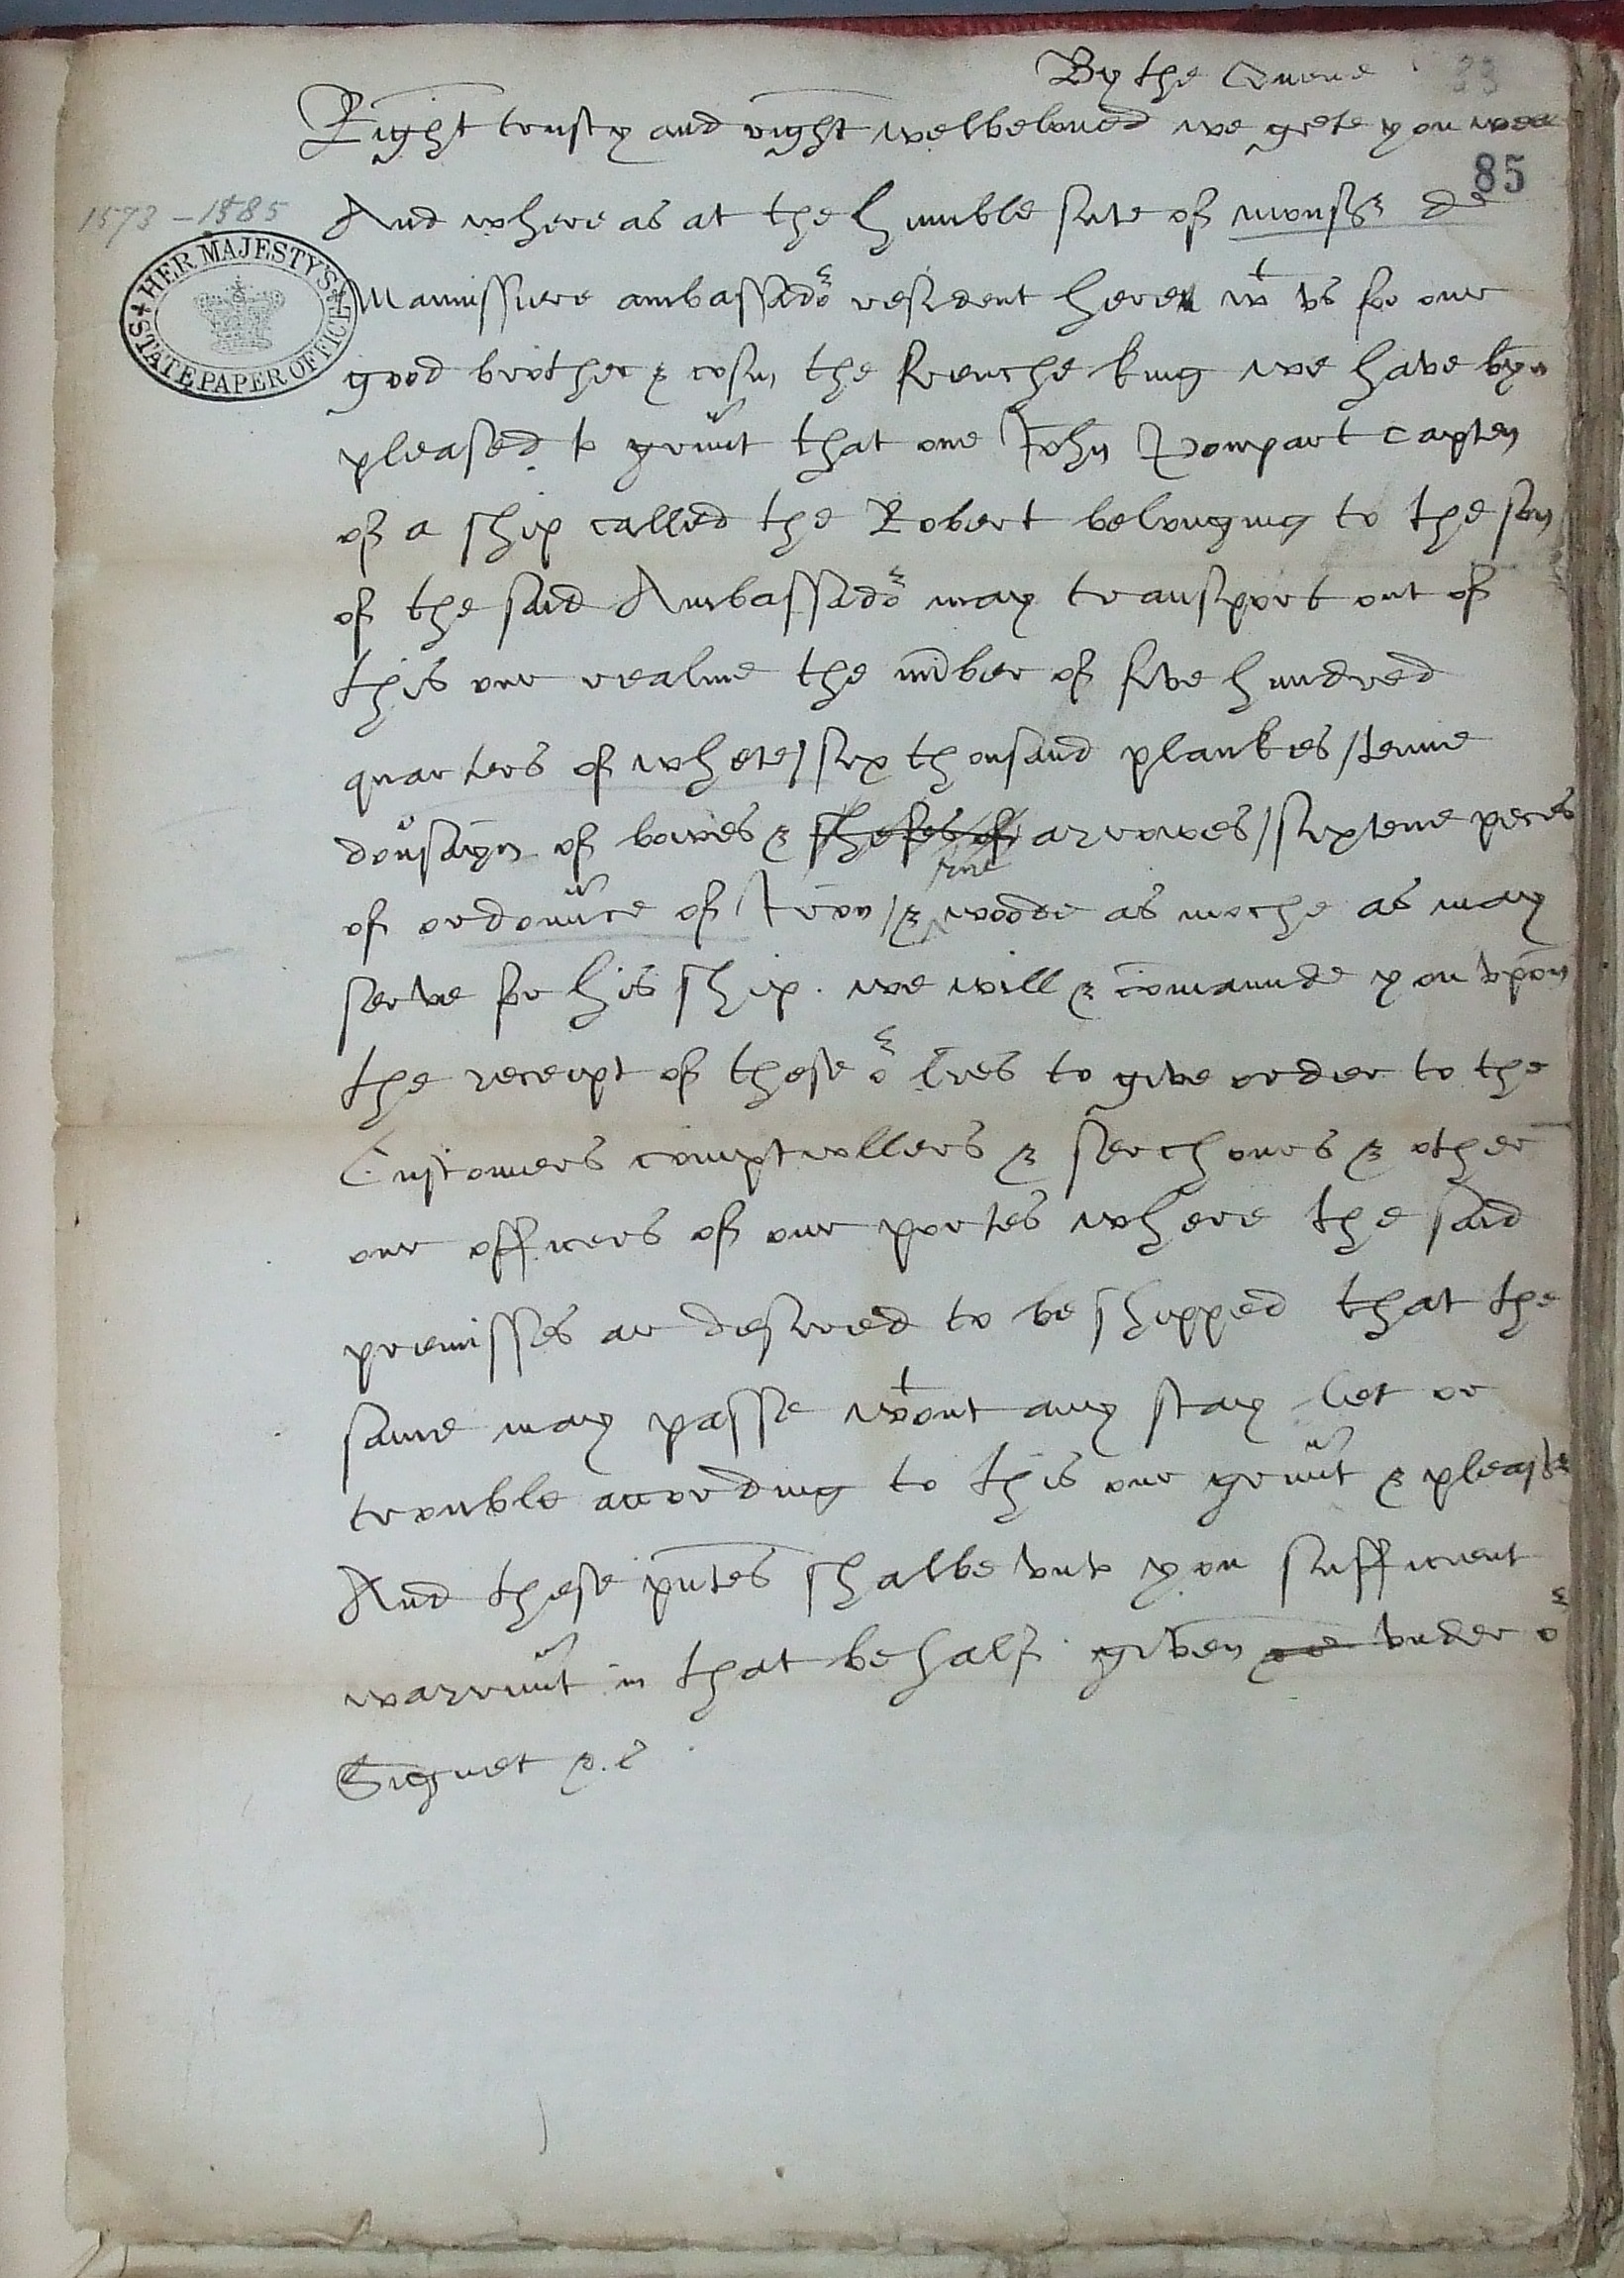 By the Quene
33
Right trusty and right welbeloved we grete you well
85
1573 - 1585
And where as at the humble sute of monsr de
HER MAJESTY'S STATE PAPER OFFICE
Mauvissiere ambassador resident here wt vs for our
good brother & cosin the frenche king we have byn
pleased to graunt that one John Pompart capten
of a ship called the Robert belonging to the son
of the said Ambassador may transport out of
this our realme the nūber of five hundred
quarters of whete / six thousand plankes / tenne
dousayn of bowes & shefes of arrowes / sixtene peces
of ordonnce of Iron / & wodde as moche as may
serve for his ship . we will & cōmaunde you vpon
the receipt of these or lres to give order to the
Customers comptrollers & serchours & other
our officers of our portes where the said
premisses ar desired to be shipped that the
same may passe wtout any stay let or
trouble according to this our graunt & pleasr
And these pntes shalbe vnto you sufficient
warraunt in that behalf . given vnder or
Signet &.c